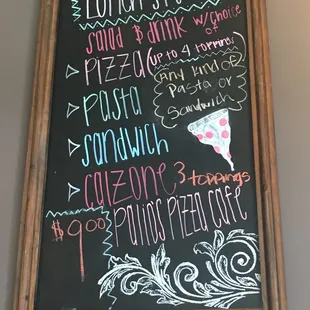 salad & drink w/choice
of
PIZZA (up to 4 toppings)
pasta
sandwich
(Any kind of
Pasta or
Sandwich
CalZONE 3 toppings
$9.00
Palio's Pizza Cafe